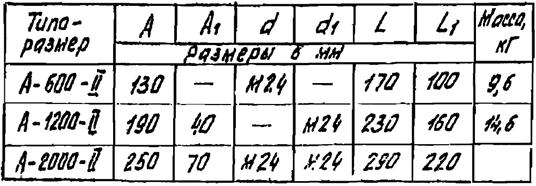 Типо-размер A A1 d d1 L L1 Масса, кГ
Размеры в мм
А-600-II 130 — М24 — 170 100 9,6
А-1200-II 190 40 — М24 230 160 14,6
А-2000-II 250 70 М24 М24 290 220